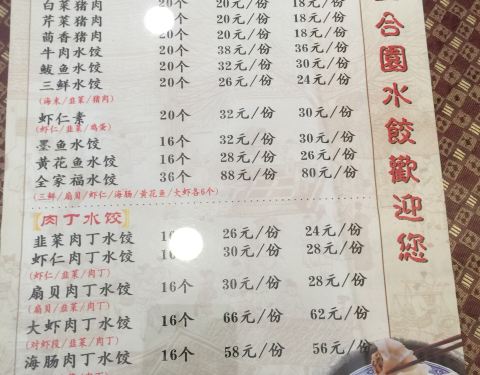 白菜猪肉 20个 20元/份 18元/份
芹菜猪肉 20个 20元/份 18元/份
茴香猪肉 20个 20元/份 18元/份
牛肉水饺 20个 38元/份 36元/份
鲅鱼水饺 20个 32元/份 30元/份
三鲜水饺 20个 26元/份 24元/份
(海米/韭菜/猪肉)
虾仁素 20个 32元/份 30元/份
(虾仁/韭菜/鸡蛋)
墨鱼水饺 16个 32元/份 30元/份
黄花鱼水饺 16个 28元/份 26元/份
全家福水饺 36个 88元/份 80元/份
(三鲜/扇贝/虾仁/海肠/黄花鱼/大虾各6个)
【肉丁水饺】
韭菜肉丁水饺 16 26元/份 24元/份
虾仁肉丁水饺 16 30元/份 28元/份
(虾仁/韭菜/肉丁)
扇贝肉丁水饺 16个 30元/份 28元/份
(扇贝/韭菜/肉丁)
大虾肉丁水饺 16个 66元/份 62元/份
(对虾段/韭菜/肉丁)
海肠肉丁水饺 16个 58元/份 56元/份
合園水餃歡迎您